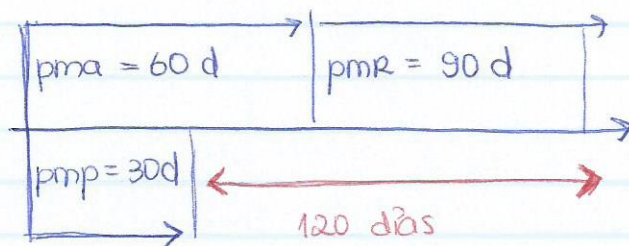 pma = 60 d
pmR = 90 d
pmp = 30d
120 dias